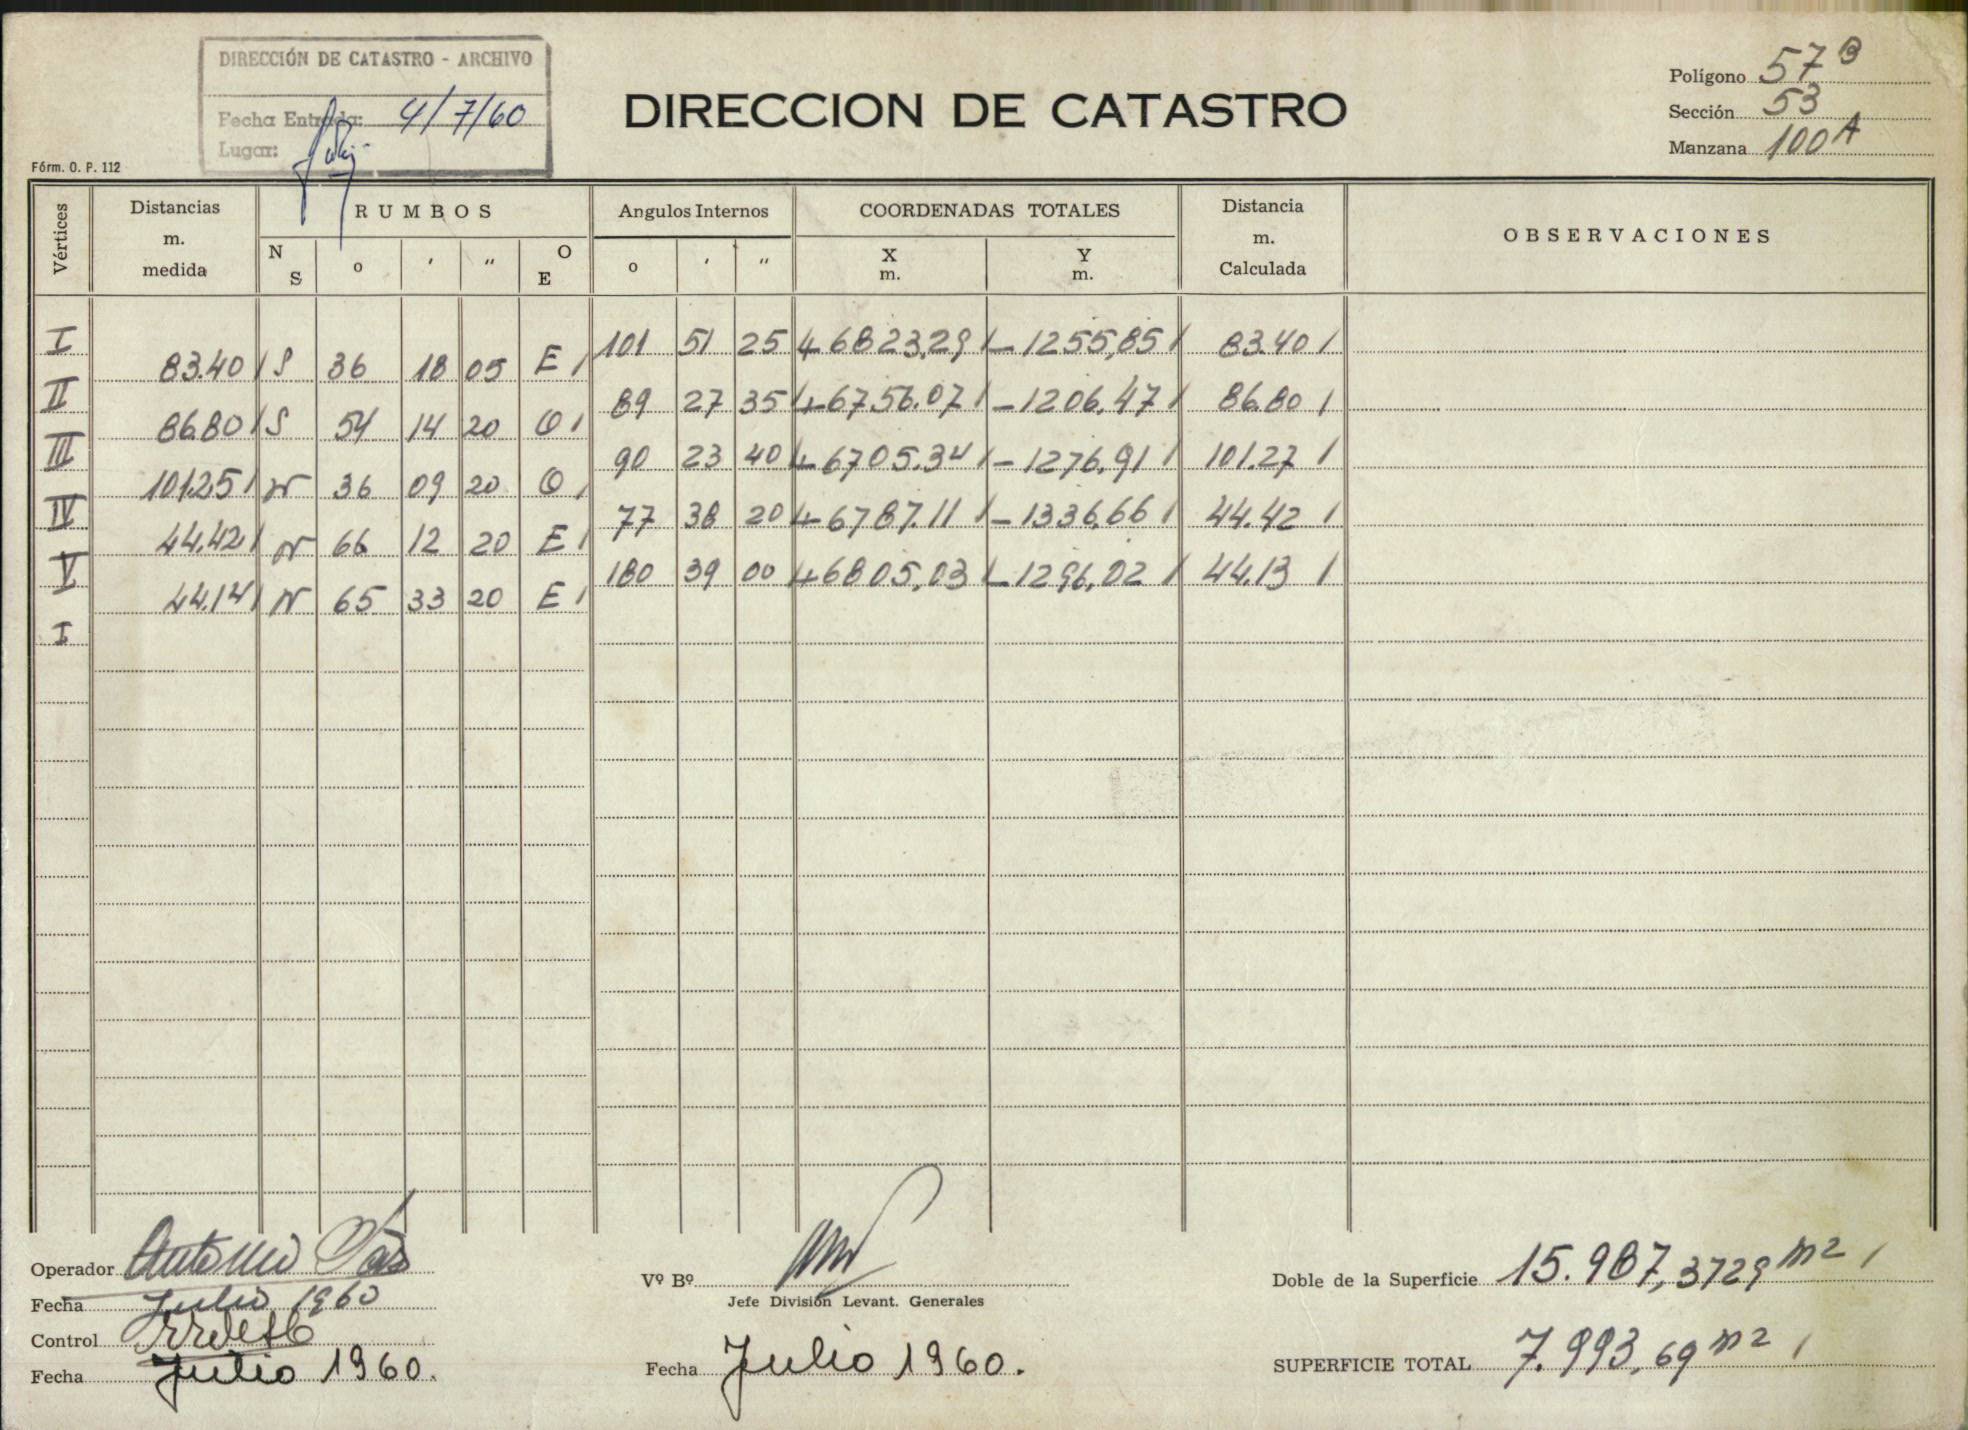 DIRECCIÓN DE CATASTRO - ARCHIVO
Fecha Entrada: 4/7/60
Lugar:
Fórm. O. P. 112
DIRECCION DE CATASTRO
Polígono 57 B
Sección 53
Manzana 100 A
Vértices Distancias m. medida RUMBOS Angulos Internos COORDENADAS TOTALES Distancia m. Calculada OBSERVACIONES
N S o ′ ″ O E o ′ ″ X m. Y m.
I 101 51 25 +6823,29 -1255,85 83.40
83.40 S 36 18 05 E
II 89 27 35 +6756.07 -1206,47 86.80
86.80 S 54 14 20 O
III 90 23 40 +6705.34 -1276,91 101.27
101.25 N 36 09 20 O
IV 77 38 20 +6787.11 -1336,66 44.42
44.42 N 66 12 20 E
V 180 39 00 +6805,03 -1296,02 44.13
44.14 N 65 33 20 E
I
Operador Antonio
Fecha Julio 1960
Control
Fecha Julio 1960.
Vº Bº
Jefe División Levant. Generales
Fecha Julio 1960.
Doble de la Superficie 15.987,3729 m2
SUPERFICIE TOTAL 7.993,69 m2